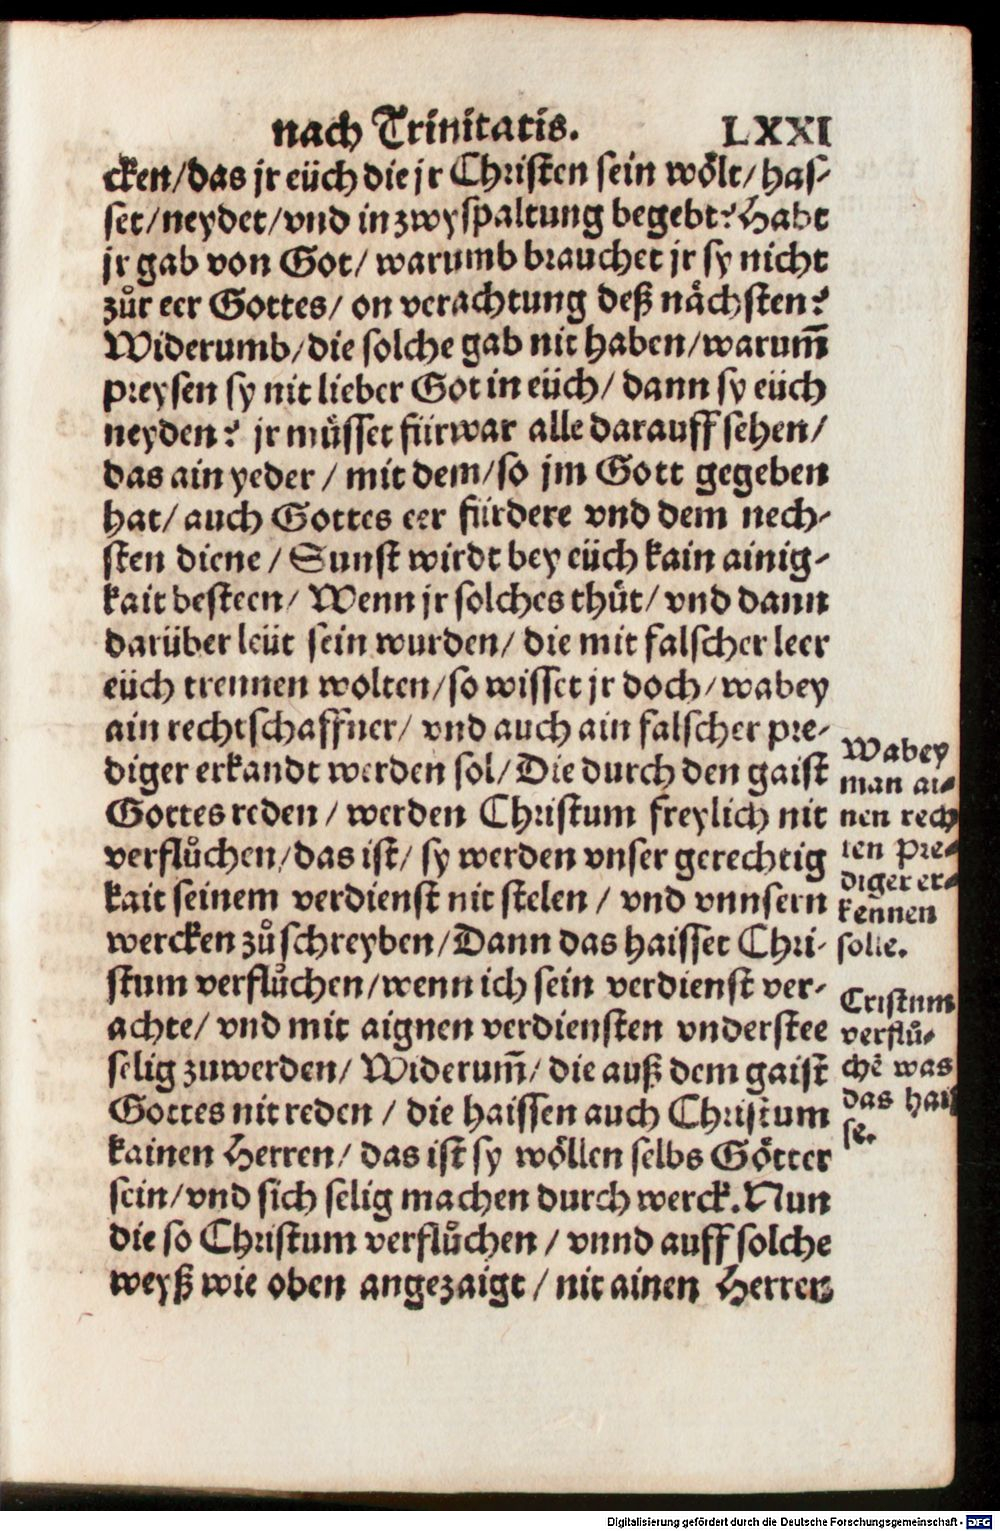 nach Trinitatis. LXXI
cken/das jr eüch die jr Christen sein wölt/has-
set/neydet/vnd in zwyspaltung begebt? Habt
jr gab von Got/ warumb brauchet jr sy nicht
zůr eer Gottes/ on verachtung deß nächsten?
Widerumb/die solche gab nit haben/warum̃
preysen sy nit lieber Got in eüch/ dann sy eüch
neyden? jr müsset fürwar alle darauff sehen/
das ain yeder / mit dem/so jm Gott gegeben
hat/ auch Gottes eer fürdere vnd dem nech-
sten diene / Sunst wirdt bey eüch kain ainig-
kait besteen/ Wenn jr solches thüt/ vnd dann
darüber leüt sein wurden/ die mit falscher leer
eüch trennen wolten/so wisset jr doch/wabey
ain rechtschaffner/ vnd auch ain falscher pre-
diger erkandt werden sol/ Die durch den gaist
Gottes reden / werden Christum freylich nit
verflůchen/das ist/ sy werden vnser gerechtig
kait seinem verdienst nit stelen / vnd vnnsern
wercken zů schreyben/Dann das haisset Chri-
stum verflůchen/wenn ich sein verdienst ver-
achte/ vnd mit aignen verdiensten vnderstee
selig zuwerden/ Widerum̃/ die auß dem gaist
Gottes nit reden / die haissen auch Christum
kainen Herren/ das ist sy wöllen selbs Götter
sein/vnd sich selig machen durch werck. Nun
die so Christum verflůchen / vnnd auff solche
weyß wie oben angezaigt / nit ainen Herren
Wabey
man ai-
nen rech
ten Pre-
diger er-
kennen
solle.
Cristum
verflů-
chẽ was
das hais
se.
Digitalisierung gefördert durch die Deutsche Forschungsgemeinschaft - DFG